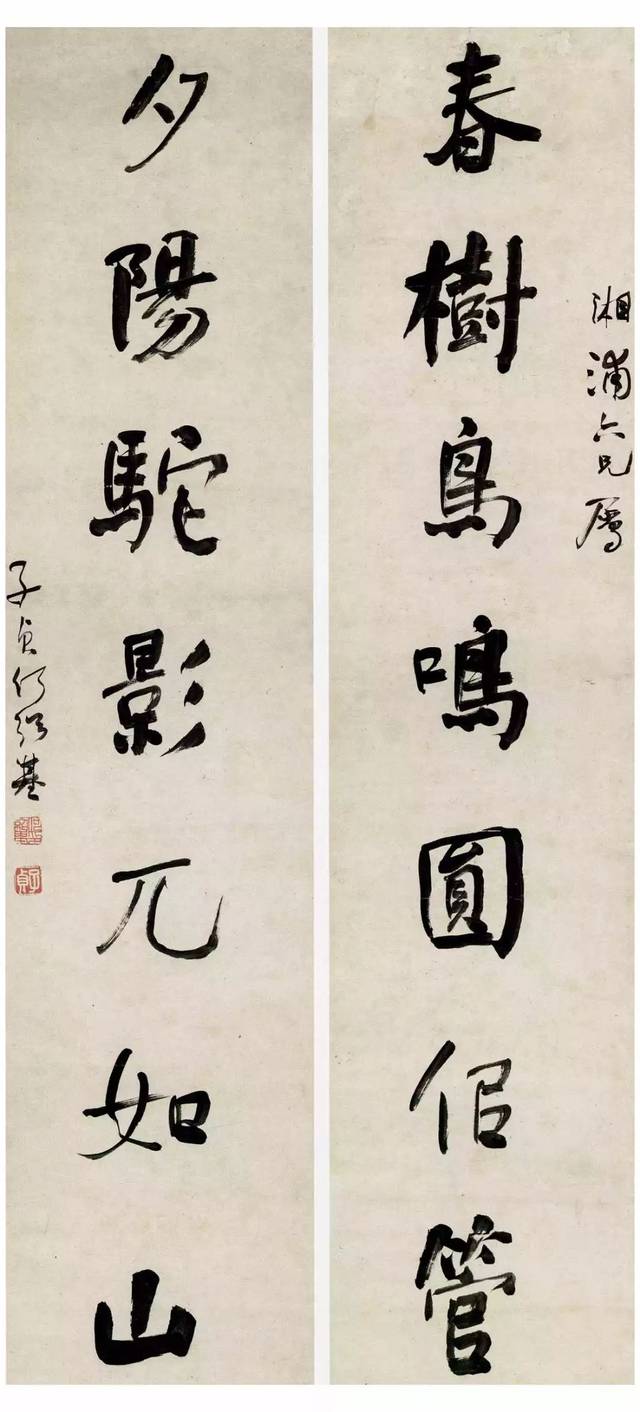 湘浦六兄屬
春樹鳥鳴圓佀管
夕陽駝影兀如山
子貞何紹基
子貞